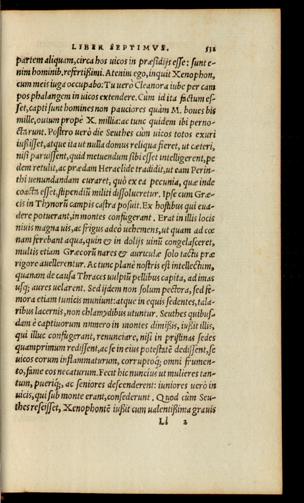 LIBER SEPTIMVS. 532
partem aliquam, circa hos uicos in præsidijs esse: sunt e-
nim hominib. refertißimi. At enim ego, inquit Xenophon,
cum meis iuga occupabo: Tu uero Cleanora iube per cam
pos phalangem in uicos extendere. Cùm id ita factum es-
set, capti sunt homines non pauciores quàm M. boues bis
mille, ouium prope X. millia: ac tunc quidem ibi perno-
ctarunt. Postro uerò die Seuthes cùm uicos totos exuri
iußisset, atque ita ut nulla domus reliqua fieret, ut cæteri,
nisi paruissent, quid metuendum sibi esset intelligerent, pe
dem retulit, ac prædam Heraclidē tradidit, ut eam Perin-
thi uenundandam curaret, quò ex ea pecunia, quæ inde
coacta esset, stipendiū militi dissolueretur. Ipse cum Græ-
cis in Thynorū campis castra posuit. Ex hostibus qui eua-
dere potuerant, in montes confugerant. Erat in illis locis
niuis magna uis, ac frigus adeò uehemens, ut quam ad cœ
nam ferebant aqua, quin & in dolijs uinū congelasceret,
multis etiam Græcorū nares & auriculæ solo tactu præ
rigore auellerentur. Ac tunc planè nostris est intellectum,
quanam de causa Thraces uulpiū pellibus capita, ad imas
usq; aures uelarent. Sed ijdem non solum pectora, sed fe-
mora etiam tunicis muniunt: atque in equis sedentes, tala-
ribus lacernis, non chlamydibus utuntur. Seuthes quibus-
dam è captiuorum numero in montes dimißis, iußit illis,
qui illuc confugerant, renunciare, nisi in pristinas sedes
quamprimum redissent, ac se in eius potestatē dedissent, se
uicos eorum inflammaturum, corruptoq; omni frumen-
to, fame eos necaturum. Fecit hic nuncius ut mulieres tan-
tum, pueriq;, ac seniores descenderent: iuniores uerò in
uicis, qui sub monte erant, consederunt. Quod cùm Seu-
thes resciisset, Xenophontē iußit cum ualentißima grauis
Ll 2